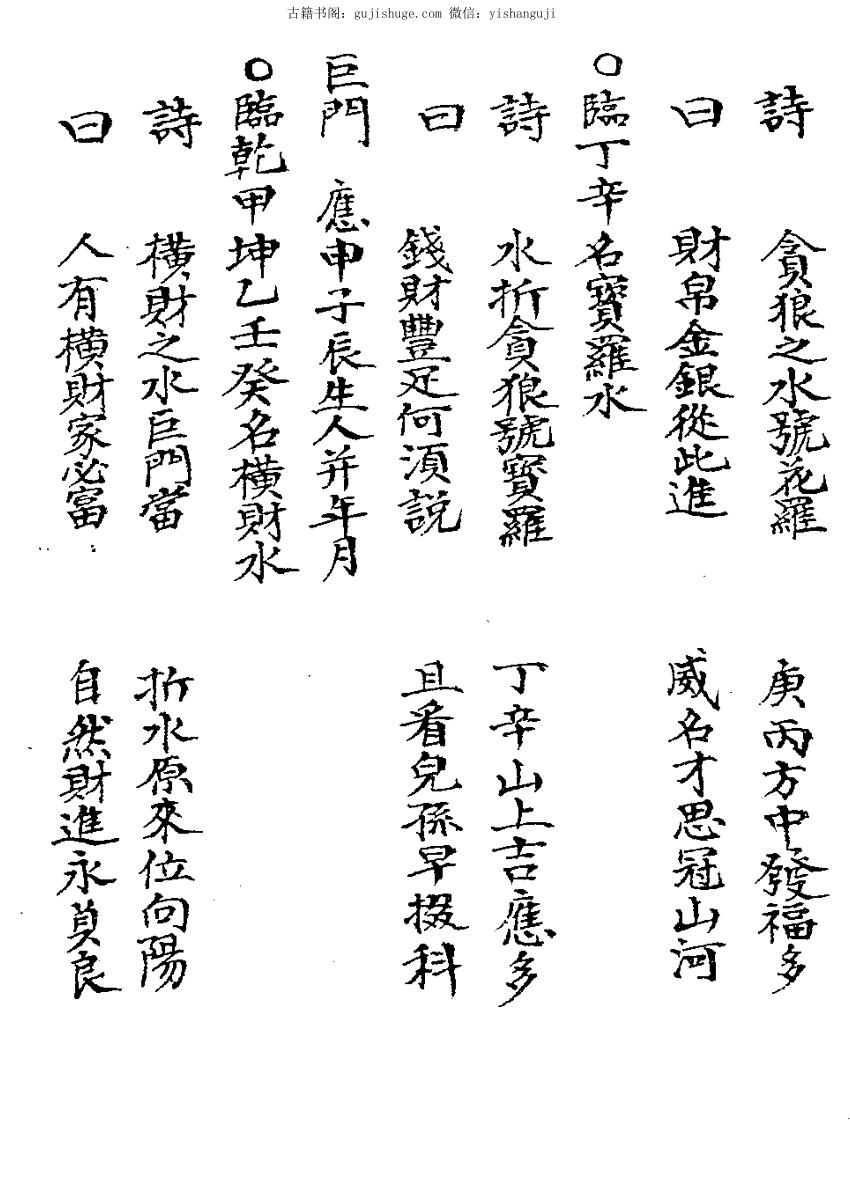 古籍书阁：gujishuge.com 微信：yishanguji
詩 貪狼之水號花羅 庚丙方中發福多
曰 財帛金銀從此進 威名才思冠山河
○臨丁辛名寶羅水
詩 水折貪狼號寶羅 丁辛山上吉應多
曰 錢財豐足何須說 且看兒孫早掇科
巨門 應申子辰生人并年月
○臨乾甲坤乙壬癸名橫財水
詩 橫財之水巨門當 折水原來位向陽
曰 人有橫財家必富 自然財進永貞良